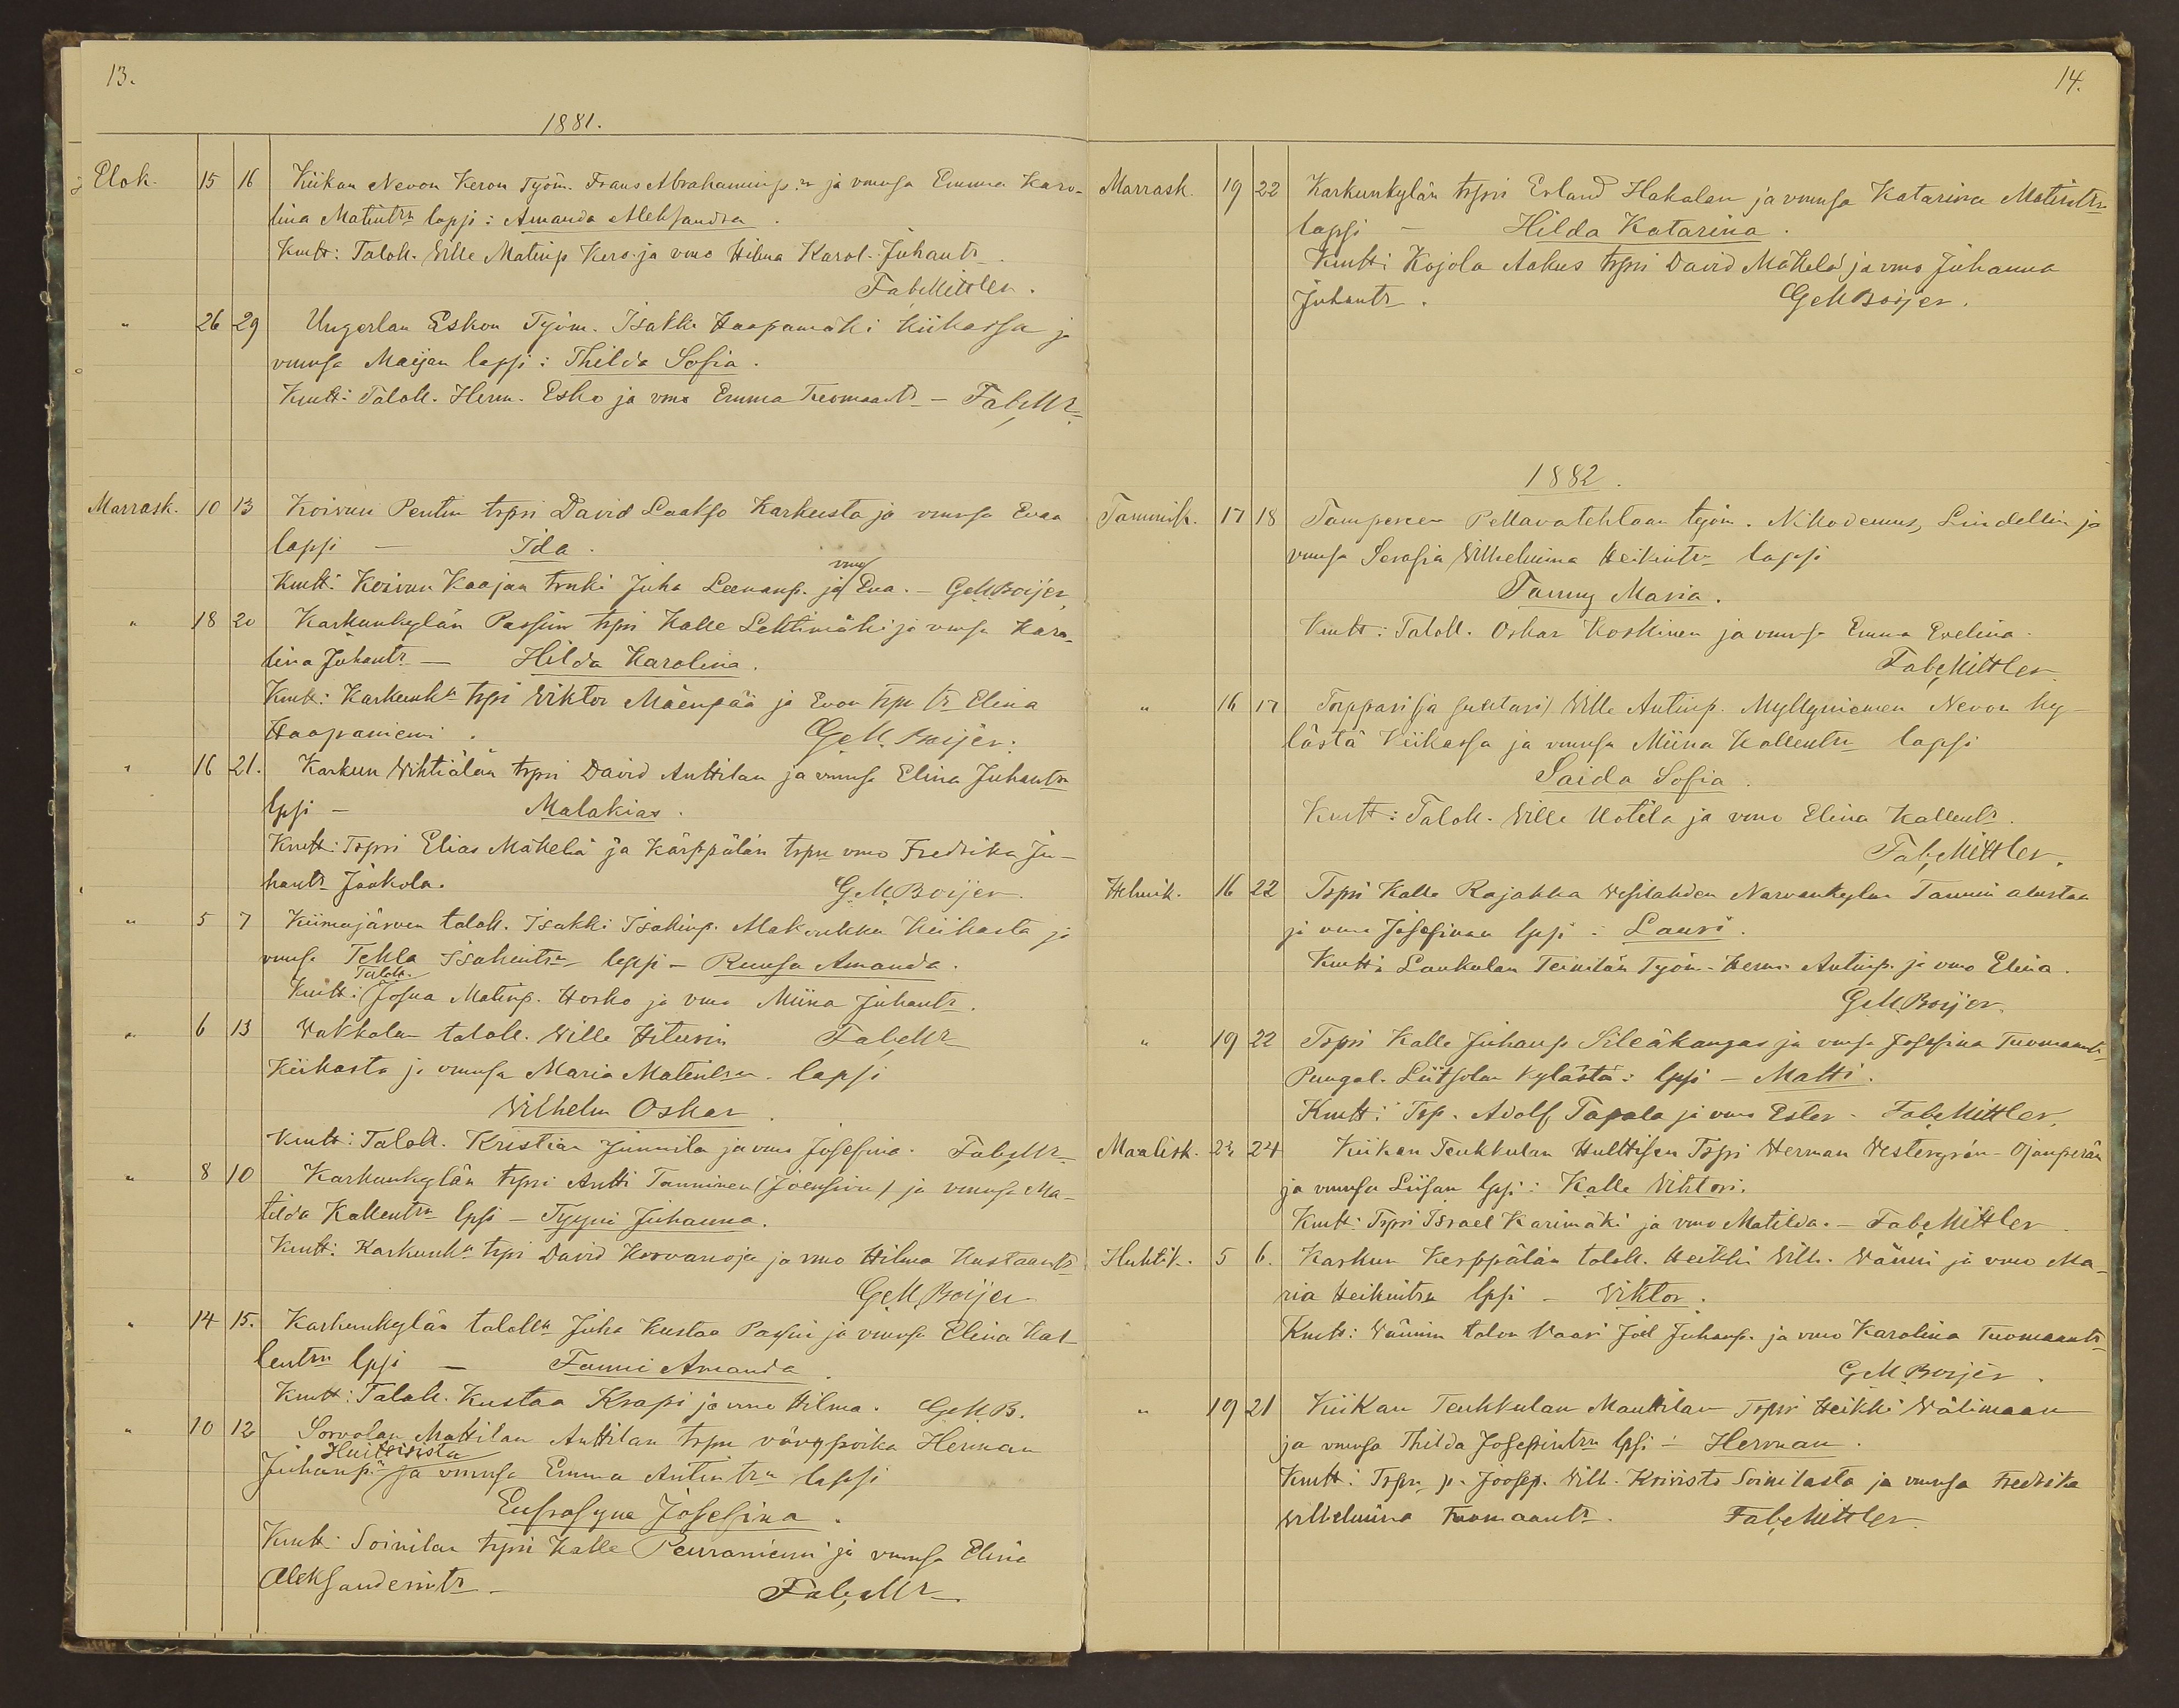 13.
1881.
Elok. 15 16 Kiikan Nevon Keron Työm. Frans Abrahaminp.n ja vmnsa Emma Karo-
lina Matintrn lapsi: Amanda Aleksandra.
Kmtt: Taloll. Wille Matinp Kero ja vmo Hilma Karol. Juhantr.
Fab. Mittler.
" 26 29 Ungerlan Eskon Työm. Isakki Haapamäki Kiikassa ja
vmnsa Maijan lapsi: Thilda Sofia.
Kmtt: Taloll. Herm. Esko ja vmo Emma Tuomaantr - Fab. Mr
Marrask. 10 13 Koivun Pentin trpri David Laakso Karkusta ja vmnsa Evaa
lapsi - Ida.
Kmtt: Koivun Kaajan trnki Juha Leenanp. ja vmo Eva. - G.M.Boijer
" 18 20 Karkunkylän Passin trpri Kalle Lehtimäki ja vmsa Karo-
lina Juhantr - Hilda Karolina.
Kmtt: Karkunkn trpri Wiktor Mäenpää ja Evon trpn tr Elina
Haapaniemi. G.M. Boijer.
" 16 21. Karkun Wihtiälän trpri David Anttilan ja vmnsa Elina Juhantrn
lpsi - Malakias.
Kmtt: Trpri Elias Mäkelä ja Kärppälän trpn vmo Fredrika Ju-
hantr Jaakola. G.M.Boijer.
" 5 7 Kiimajärven taloll. Isakki Isakinp. Makonkka Kiikasta ja
vmnsa Tekla Isakintrn lapsi - Ruusa Amanda.
Kmtt: Taloll. Josua Matinp. Horko ja vmo Miina Juhantr.
" 6 13 Wakkalan taloll. Wille Hiturin Fab. Mr
Kiikasta ja vmnsa Maria Matintrn lapsi
Wilhelm Oskar.
Kmtt: Taloll. Kristian Junnila ja vmo Josefina. Fab. Mr
" 8 10 Karkunkylän trpri Antti Tanninen (Joensuu) ja vmnsa Ma-
tilda Kallentrn lpsi - Tyyni Juhanna.
Kmtt: Karkunkn trpri David Korvanoja ja vmo Hilma Kustaantr
G.M. Boijer
" 14 15. Karkunkylän talolln Juha Kustaa Passin ja vmnsa Elina Kal-
lentrn lpsi - Fanni Amanda.
Kmtt: Taloll. Kustaa Krapi ja vmo Hilma. G.M.B.
" 10 12 Sorvolan Mattilan Anttilan trpn vävypoika Herman
Juhanp.n Huittisista ja vmnsa Emma Antintrn lapsi
Eufrosyne Josefina.
Kmtt: Soinilan trpri Kalle Peuraniemi ja vmnsa Elina
Aleksanderintr. Fab. Mr
14.
Marrask. 19 22 Karkunkylän trpri Erland Hakalan ja vmnsa Katarina Matintrn
lapsi - Hilda Katarina.
Kmtt: Kojola Aakus trpri David Mäkelä ja vmo Juhanna
Juhantr. G.M.Boijer.
1882.
Tammik. 17 18 Tampereen Pellavatehtaan työm. Nikodemus Lindellin ja
vmnsa Serafia Wilhelmina Heikintrn lapsi
Fanny Maria.
Kmtt: Taloll. Oskar Koskinen ja vmnsa Emma Evelina.
Fab. Mittler
" 16 17 Torppari (ja suutari) Wille Antinp. Myllyniemen Nevon ky-
lästä Kiikassa ja vmnsa Miina Kallentrn lapsi
Saida Sofia.
Kmtt: Taloll. Wille Uotila ja vmo Elina Kallentr.
Fab. Mittler.
Helmik. 16 22 Trpri Kalle Rajakka Wesilahden Narvankylän Tannin alustaa
ja vmo Josefinan lpsi: Lauri.
Kmtt: Laukulan Teinilän Työm. Herm. Antinp. ja vmo Elina.
G.M.Boijer
" 19 22 Trpri Kalle Juhanp Sileäkangas ja vmsa Josefina Tuomaantr
Pungal. Liitsolan kylästä: lpsi - Matti.
Kmtt: Trp. Adolf Tapala ja vmo Ester - Fab. Mittler.
Maalisk. 23 24 Kiikan Teukkulan Hulttisen Trpri Herman Westergrén-Ojanperän
ja vmnsa Liisan lpsi: Kalle Wihtori.
Kmtt: Trpri Israel Karimäki ja vmo Matilda. - Fab. Mittler
Huhtik. 5 6. Karkun Kerppälän taloll. Heikki Wilh. Wänni ja vmo Ma-
ria Heikintrn lpsi - Wiktor.
Kmtt: Wännin talon Vaari Joel Juhanp. ja vmo Karolina Tuomaantr
G.M.Boijer.
" 19 21 Kiikan Teukkulan Maunilan Trpri Heikki Wälimaan
ja vmnsa Thilda Josefintrn lpsi - Herman.
Kmtt: Trpn p. Joosep. Wilh. Kiviristo Soinilasta ja vmnsa Fredrika
Wilhelmina Tuomaantr. Fab. Mittler.